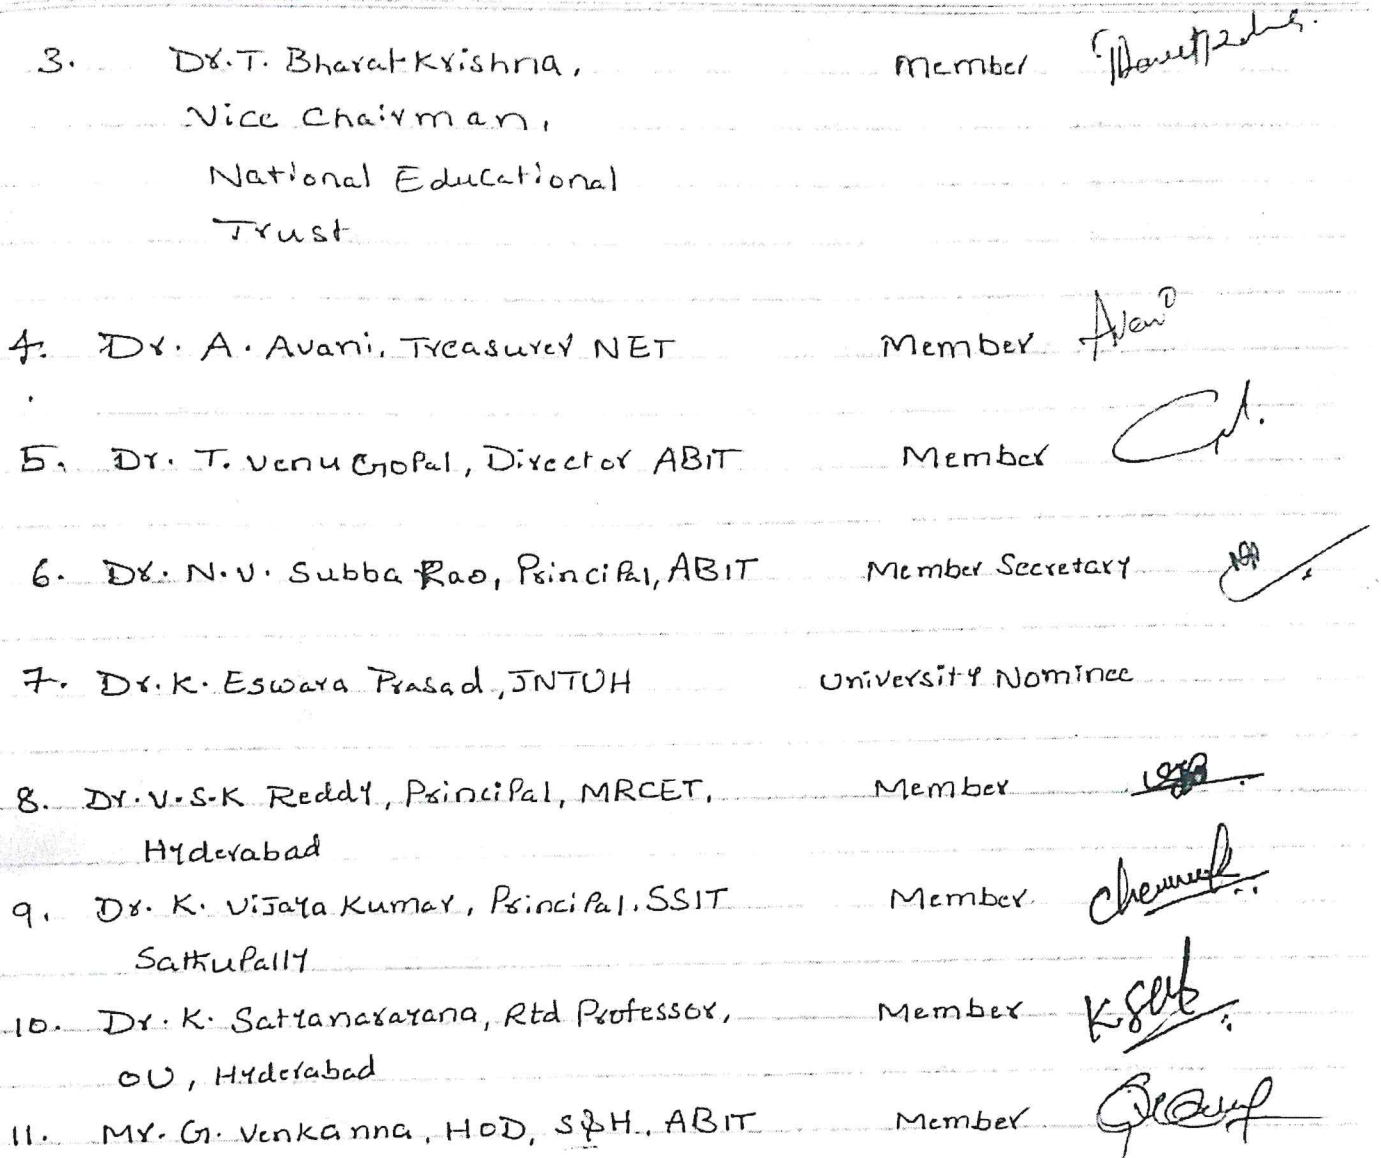 3. Dr. T. Bharat Krishna, Member
Vice Chairman,
National Educational
Trust
4. Dr. A. Avani, Treasurer NET Member Avani
5. Dr. T. Venu Gopal, Director ABIT Member
6. Dr. N.V. Subba Rao, Principal, ABIT Member Secretary
7. Dr. K. Eswara Prasad, JNTUH University Nominee
8. Dr. V.S.K Reddy, Principal, MRCET, Member
Hyderabad
9. Dr. K. Vijaya Kumar, Principal, SSIT Member
Sathupally
10. Dr. K. Satyanarayana, Rtd Professor, Member
OU, Hyderabad
11. Mr. G. Venkanna, HOD, S&H, ABIT Member